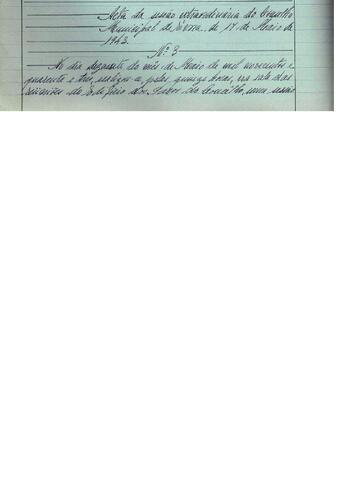 Acta da sessão extraordinária do Conselho
Municipal de Évora, de 17 de Maio de
1943.
Nº 3
No dia dezassete do mês de Maio de mil novecentos e
quarenta e três, realizou-se, pelas quinze horas, na sala das
reuniões do edifício dos Paços do Concelho, uma sessão